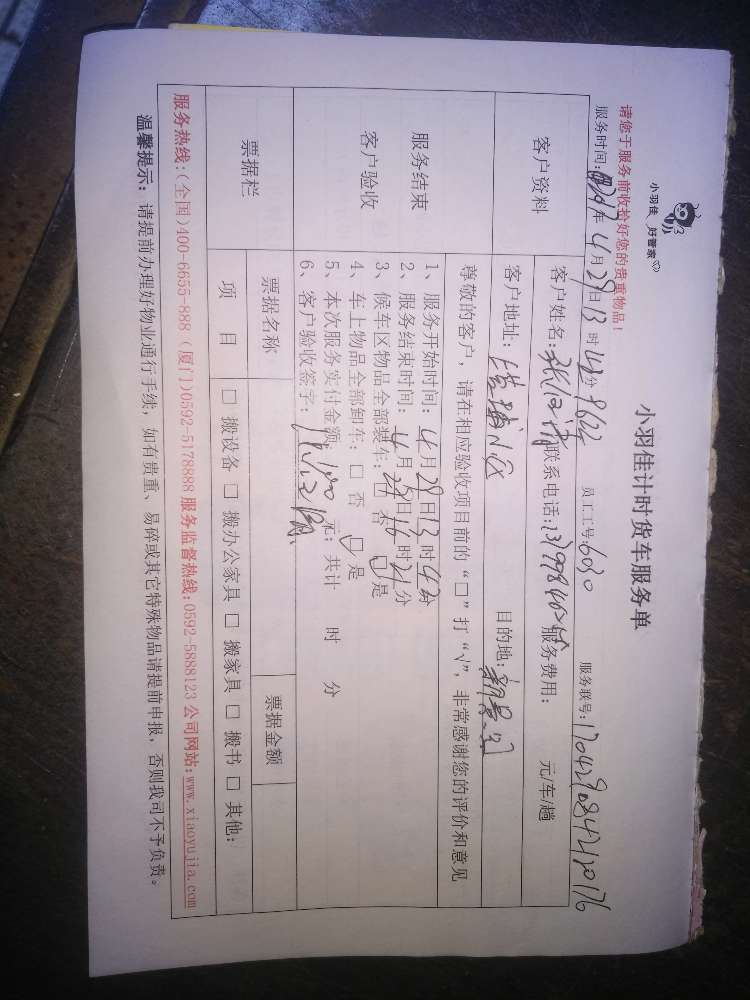 小羽佳 好管家
小羽佳计时货车服务单
请您于服务前收拾好您的贵重物品!
服务时间: 2017年 4月 29日 13时 42分 员工工号: 6010 服务联号:
客户资料
客户姓名: 联系电话: 服务费用: 元/车/趟
客户地址: 目的地:
服务结束
客户验收
尊敬的客户, 请在相应验收项目前的“□”打“√”, 非常感谢您的评价和意见
1、服务开始时间: 4月 29日 13时 42分
2、服务结束时间: 4月 29日 16时 21分
3、候车区物品全部装车: □ 否 □ 是
4、车上物品全部卸车: □ 否 □ 是
5、本次服务实付金额: 元; 共计 时 分
6、客户验收签字:
票据栏
票据名称 票据金额
项 目 □ 搬设备 □ 搬办公家具 □ 搬家具 □ 搬书 □ 其他:
服务热线:(全国)400-6655-888 (厦门)0592-5178888 服务监督热线:0592-5888123 公司网站:www.xiaoyujia.com
温馨提示: 请提前办理好物业通行手续, 如有贵重、易碎或其它特殊物品请提前申报, 否则我司不予负责。